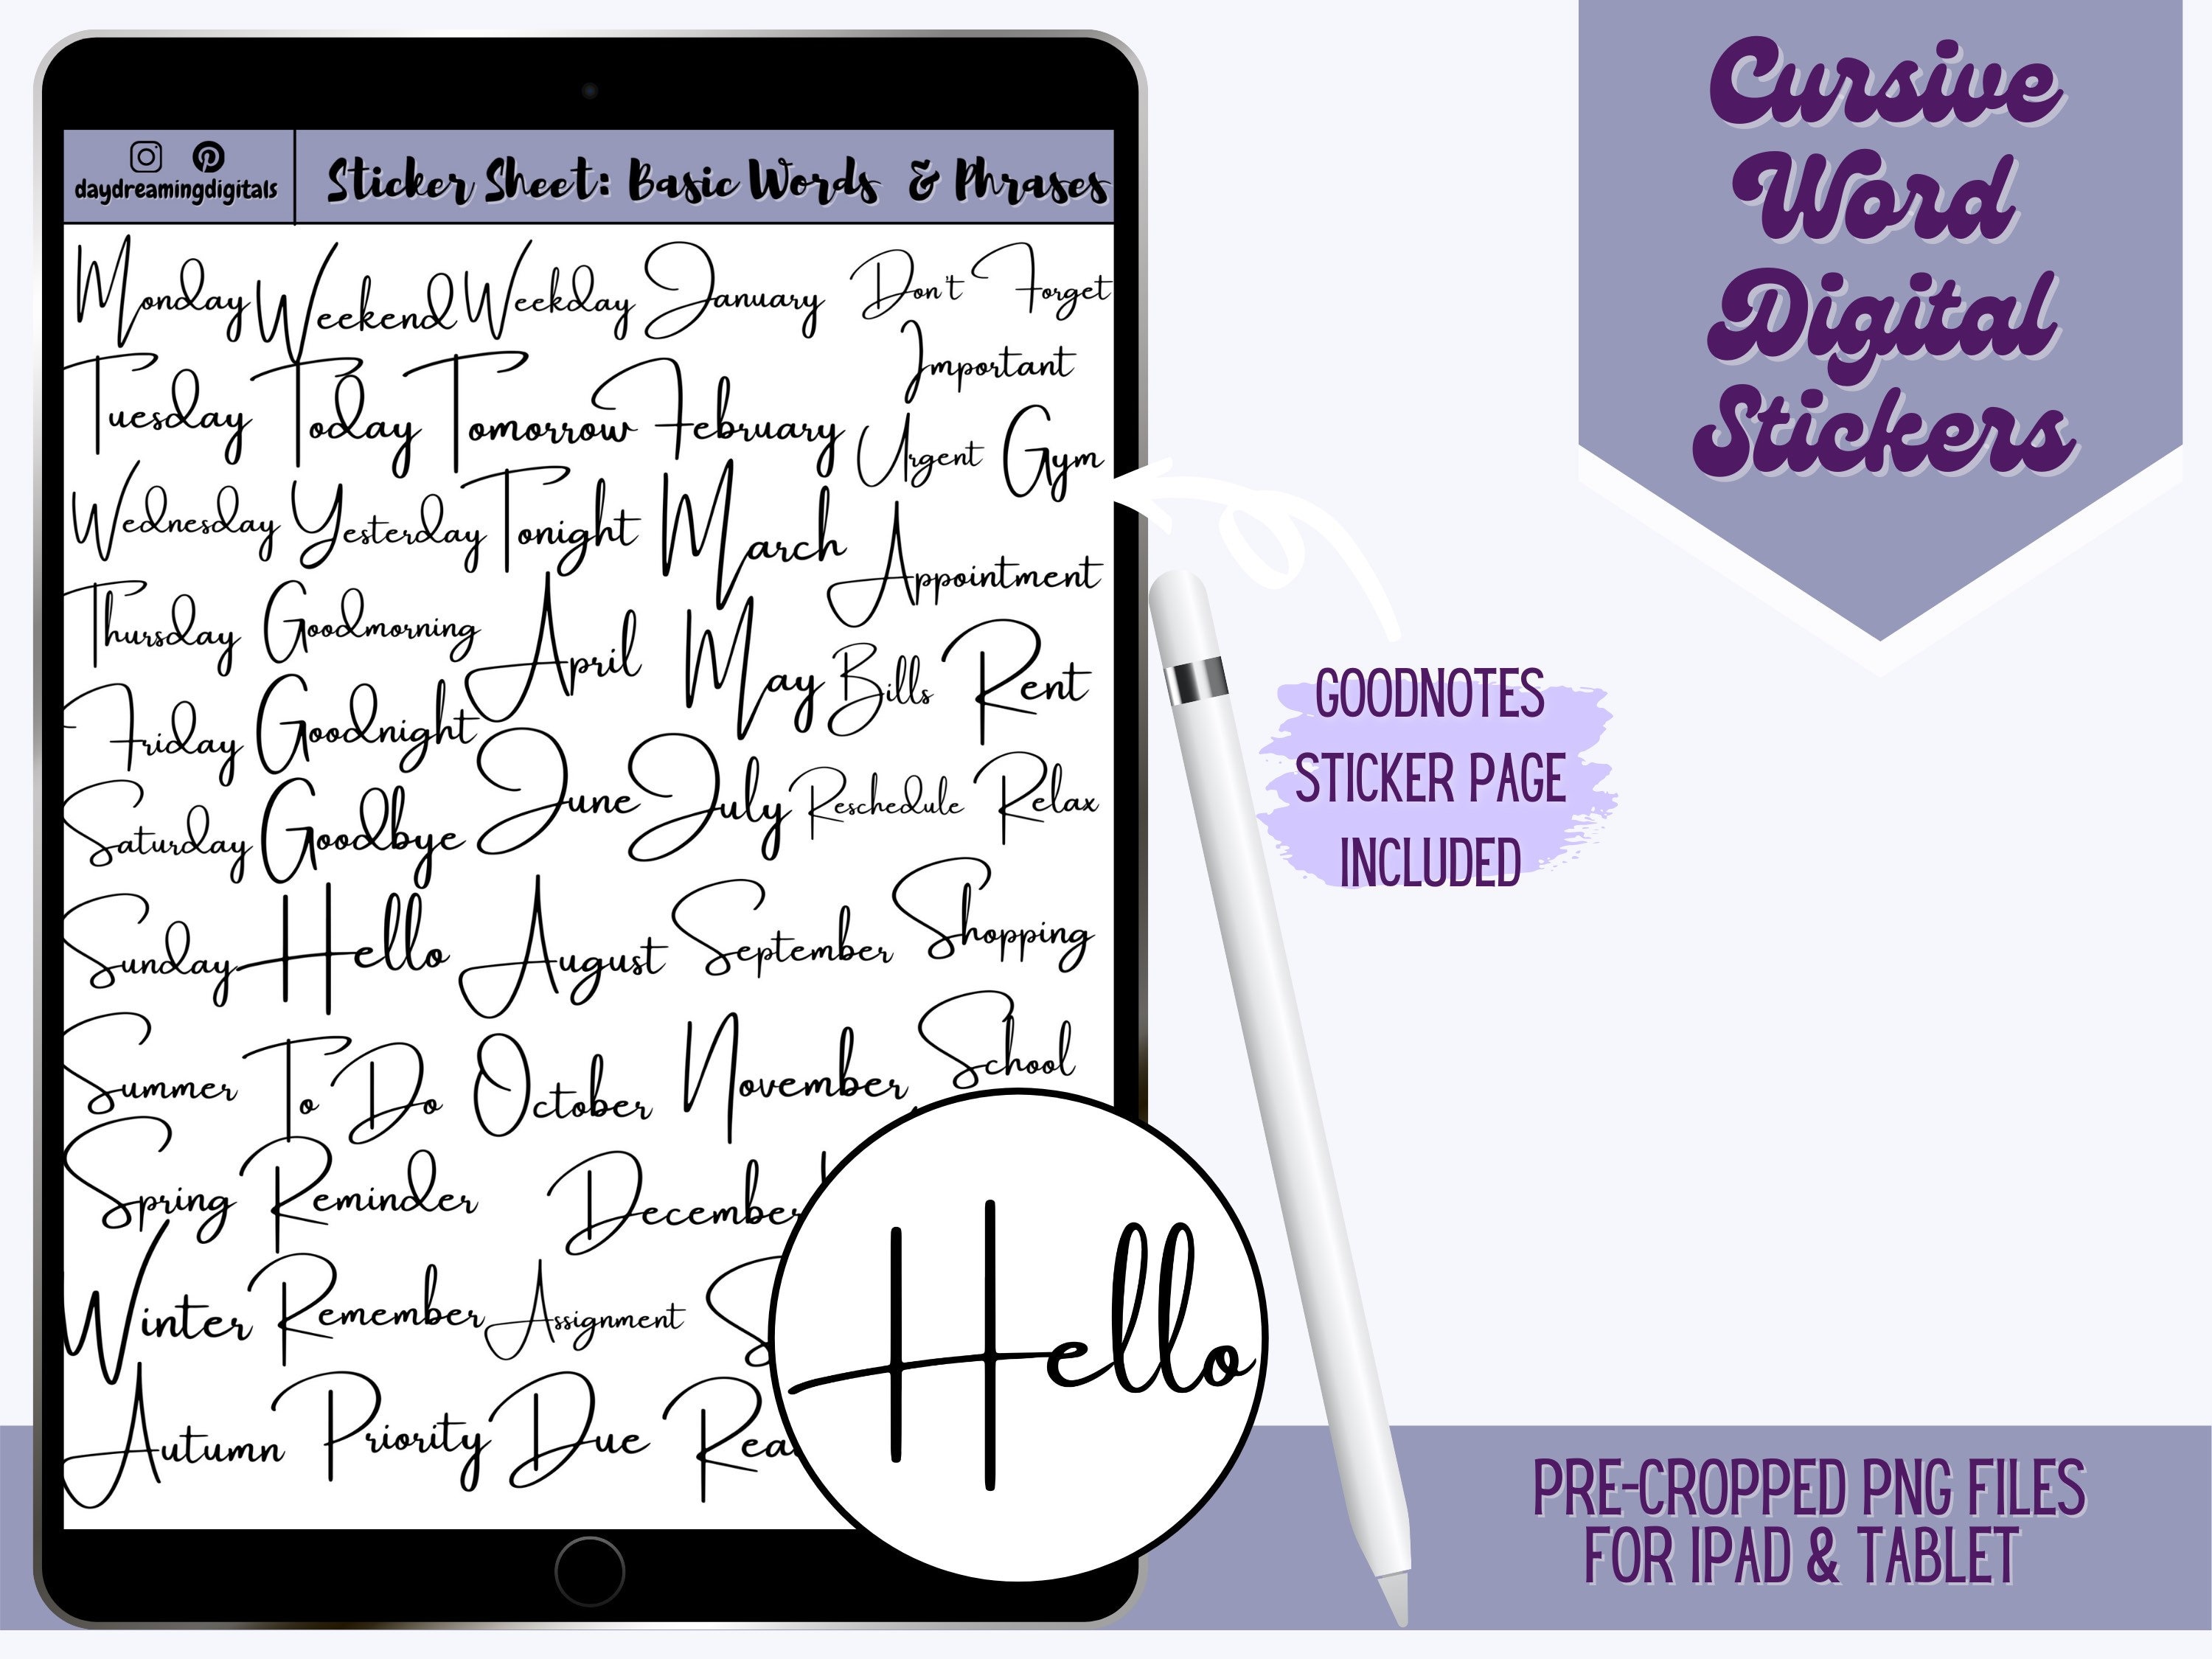 daydreamingdigitals
Sticker Sheet: Basic Words & Phrases
Monday Weekend Weekday January Don't Forget
Important
Tuesday Today Tomorrow February
Urgent Gym
Wednesday Yesterday Tonight March
Appointment
Thursday Goodmorning April May Bills Rent
Friday Goodnight
Saturday Goodbye June July Reschedule Relax
Sunday Hello August September Shopping
Summer To Do October November School
Spring Reminder December
Winter Remember Assignment
Autumn Priority Due
Hello
Cursive
Word
Digital
Stickers
GOODNOTES
STICKER PAGE
INCLUDED
PRE-CROPPED PNG FILES
FOR IPAD & TABLET